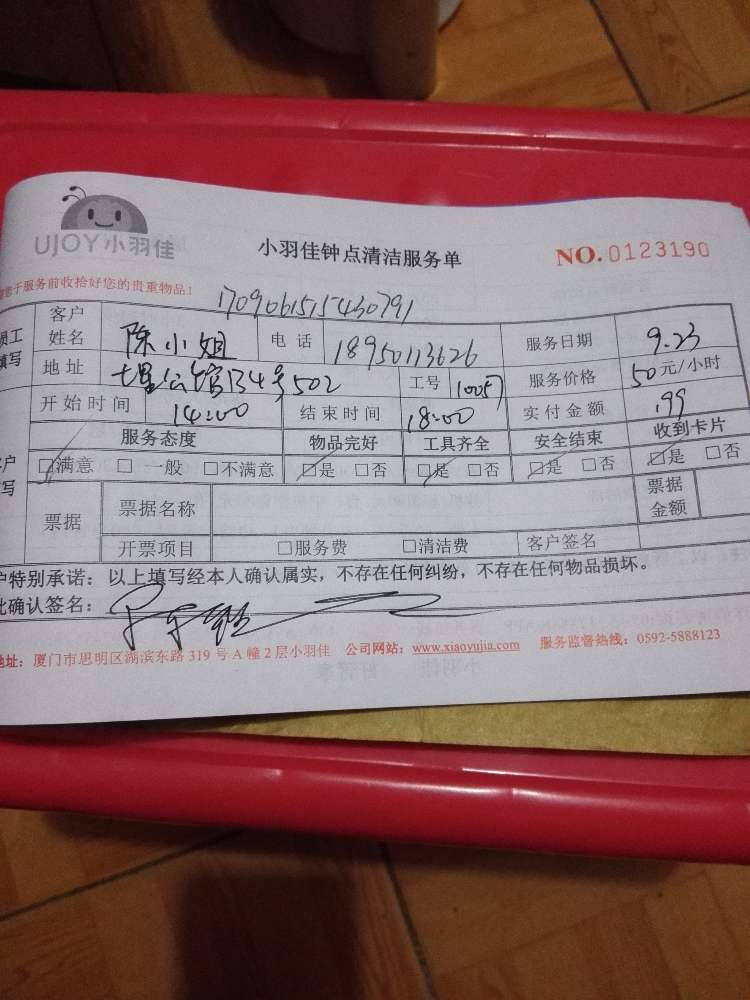 UJOY小羽佳
小羽佳钟点清洁服务单
NO.0123190
于服务前收拾好您的贵重物品！
1709061515430791
员工填写
客户姓名 陈小姐 电话 18950113626 服务日期 9.23
地址 公馆134号502 工号 10057 服务价格 50元/小时
开始时间 14:00 结束时间 18:00 实付金额 199
服务态度 物品完好 工具齐全 安全结束 收到卡片
□满意 □一般 □不满意 □是 □否 □是 □否 □是 □否 □是 □否
票据 票据名称 票据金额
开票项目 □服务费 □清洁费 客户签名
户特别承诺：以上填写经本人确认属实，不存在任何纠纷，不存在任何物品损坏。
此确认签名：
地址：厦门市思明区湖滨东路319号A幢2层小羽佳 公司网站：www.xiaoyujia.com 服务监督热线：0592-5888123